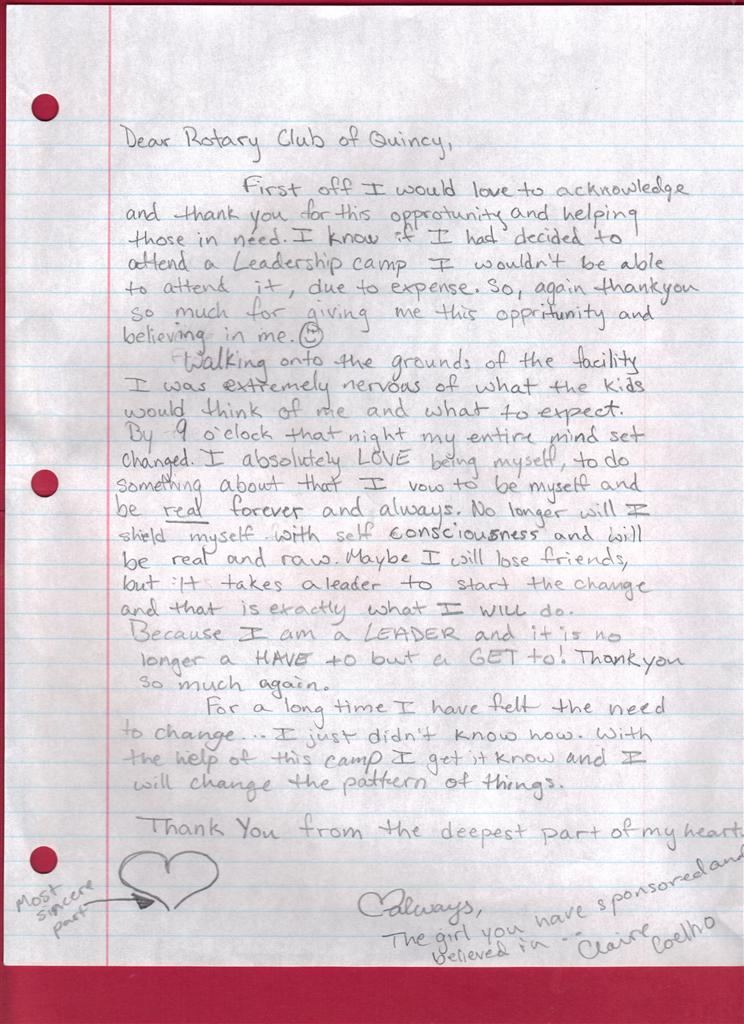 Dear Rotary Club of Quincy,
First off I would love to acknowledge
and thank you for this opprotunity and helping
those in need. I know if I had decided to
attend a Leadership camp I wouldn't be able
to attend it, due to expense. So, again thankyou
so much for giving me this oppritunity and
believing in me. ☺
Walking onto the grounds of the facility
I was extremely nervous of what the kids
would think of me and what to expect.
By 9 o'clock that night my entire mind set
changed. I absolutely LOVE being myself, to do
something about that I vow to be myself and
be real forever and always. No longer will I
shield myself with self consciousness and will
be real and raw. Maybe I will lose friends,
but it takes a leader to start the change
and that is exactly what I WILL do.
Because I am a LEADER and it is no
longer a HAVE to but a GET to! Thank you
so much again.
For a long time I have felt the need
to change... I just didn't know how. With
the help of this camp I get it know and I
will change the pattern of things.
Thank You from the deepest part of my heart.
Most
sincere
part
♡always,
The girl you have sponsored and
believed in... Claire Coelho